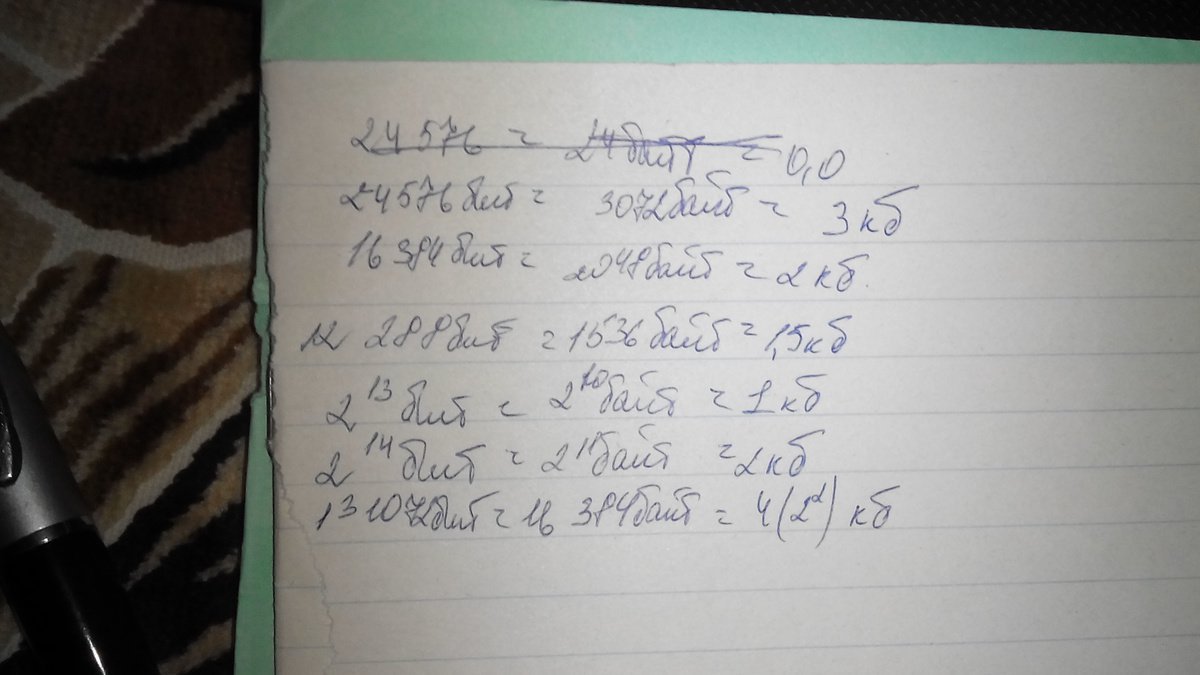 24 576 = 24 байт = 0,0
24576 бит = 3072 байт = 3 кб
16 384 бит = 2048 байт = 2 кб.
12 288 бит = 1536 байт = 1,5 кб
2¹³ бит = 2¹⁰ байт = 1 кб
2¹⁴ бит = 2¹¹ байт = 2 кб
131072 бит = 16 384 байт = 4 (2²) кб